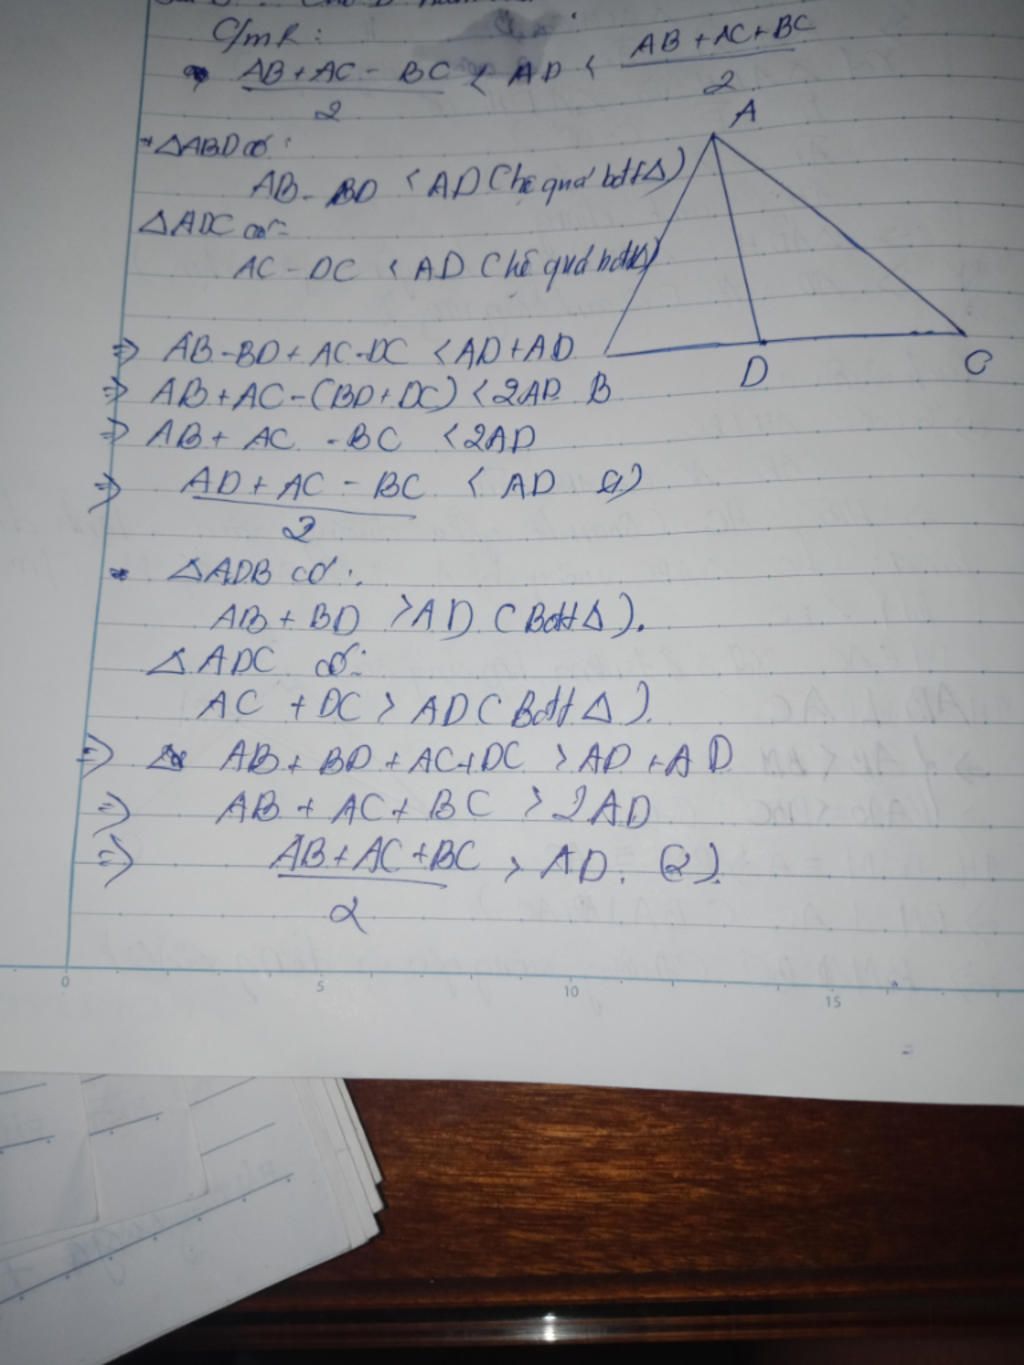 C/mR:
AB + AC - BC / 2 < AD < AB + AC + BC / 2
A
ΔABD có:
AB - BD < AD (hệ quả bđtΔ)
ΔADC có:
AC - DC < AD (hệ quả bđtΔ)
=> AB - BD + AC - DC < AD + AD
D
C
=> AB + AC - (BD + DC) < 2AD
B
=> AB + AC - BC < 2AD
=> AD + AC - BC / 2 < AD (1)
* ΔADB có:
AB + BD > AD (Bđt Δ).
ΔADC có:
AC + DC > AD (Bđt Δ).
=> AB + BD + AC + DC > AD + AD
=> AB + AC + BC > 2AD
=> AB + AC + BC / 2 > AD. (2).
0 5 10 15